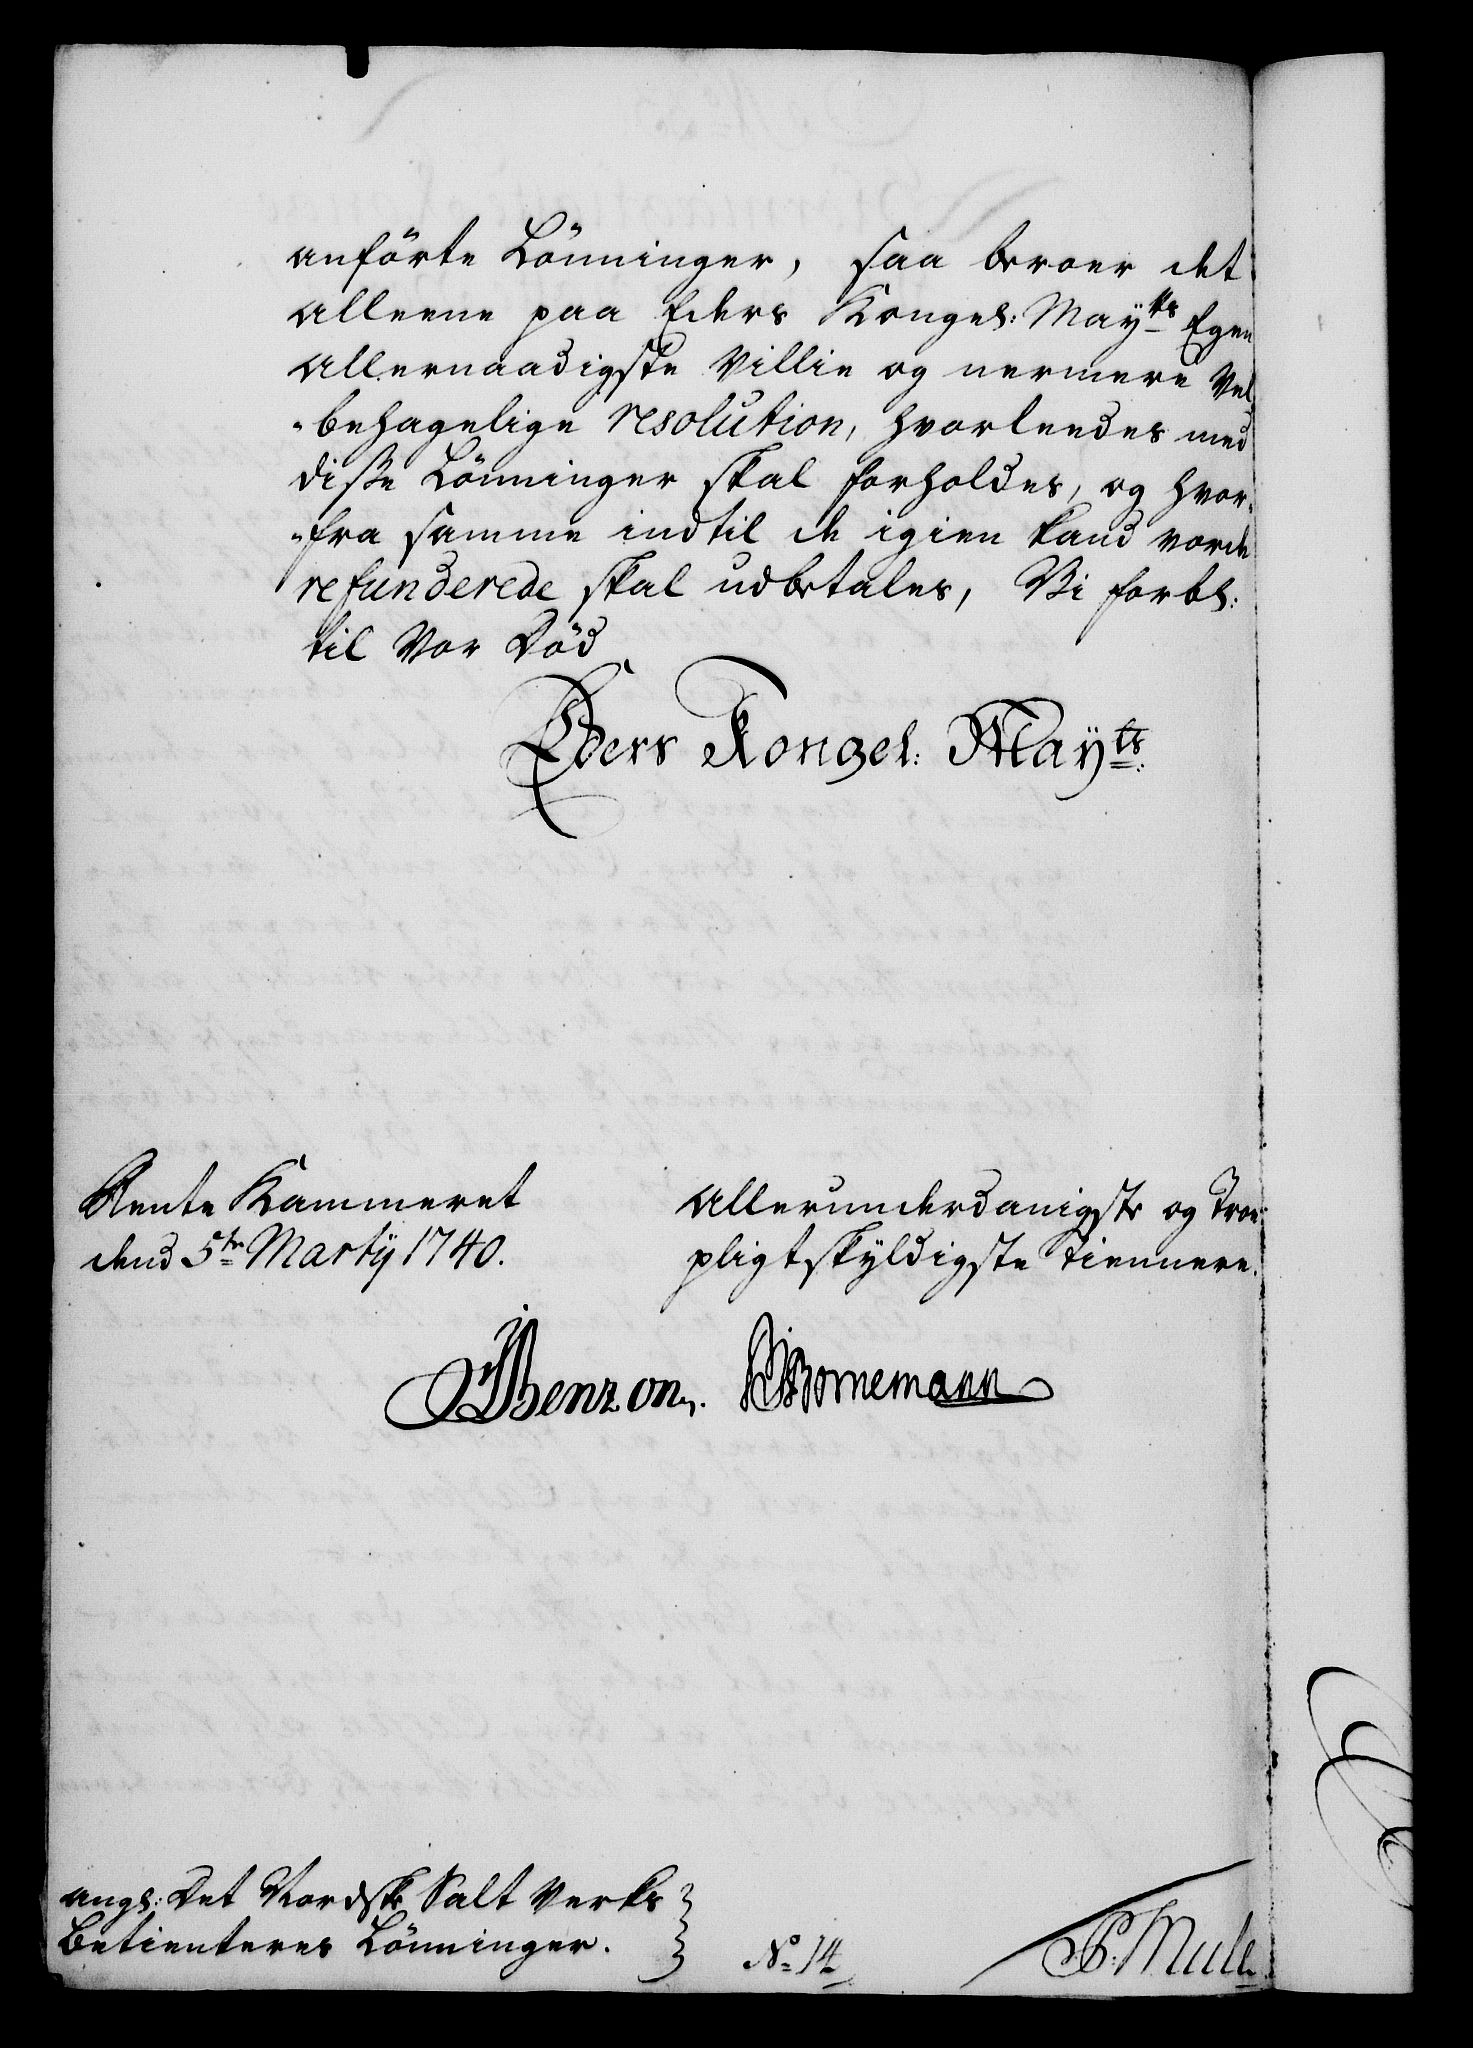 anförte Lönninger, saa beroer det
alleene paa Eders Kongel: Mayts Egen
allernaadigste Villie og nermere Vel
-behagelige resolution, hvorleedes med
disse Lönninger skal forholdes, og hvor-
-fra samme indtil de igien kand vorde
refunderede skal udbetales, Vi forbl:
til Vor Död
Eders Kongel: Mayts:
Rente Kammeret
dend 5te Martij 1740.
allerunderdanigste og Troe
pligtskyldigste Tiennere.
Benzon. Bornemann
angl: Det Nordske Salt Verks
Betienteres Lönninger.
No 14
P: Mule